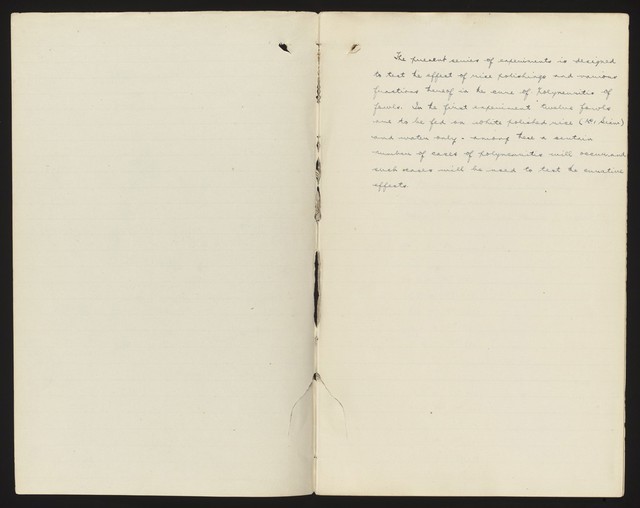 The present series of experiments is designed
to test the effect of rice polishings and various
fractions thereof in the cure of polyneuritis of
fowls. In the first experiment twelve fowls
are to be fed on white polished rice (No 1 Siam)
and water only - among these a certain
number of cases of polyneuritis will occur and
such cases will be used to test the curative
effects.